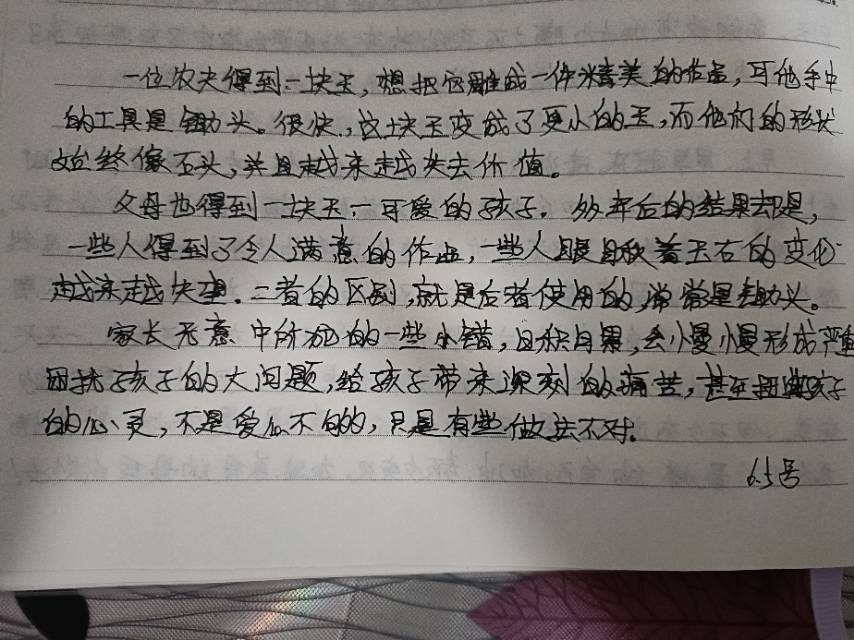 一位农夫得到一块玉,想把它雕成一件精美的作品,可他手中
的工具是锄头。很快,这块玉变成了更小的玉,而他们的形状
始终像石头,并且越来越失去价值。
父母也得到一块玉——可爱的孩子。多年后的结果却是,
一些人得到了令人满意的作品,一些人眼着玉石的变化
越来越失望。二者的区别,就是后者使用的,常常是锄头。
家长无意中所犯的一些小错,日积月累,会慢慢形成严重
困扰孩子的大问题,给孩子带来深刻的痛苦,甚至扭曲孩子
的心灵,不是爱心不的,只是有些做法不对。
6.5号